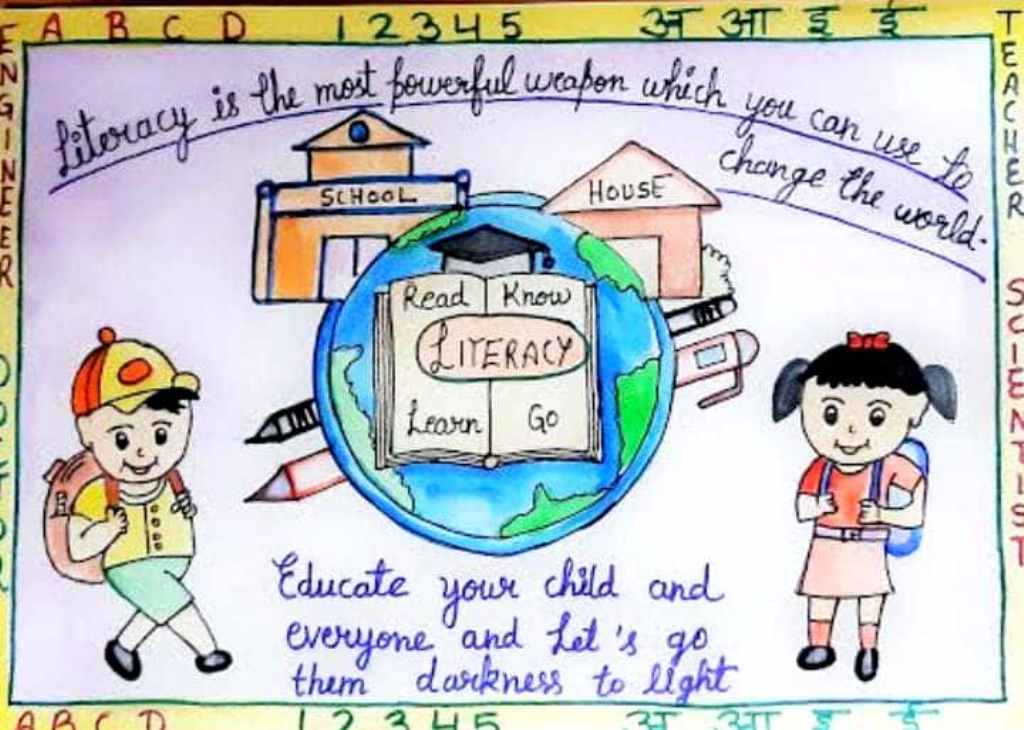 A B C D 1 2 3 4 5 अ आ इ ई
ENGINEER
DOCTOR
TEACHER
SCIENTIST
Literacy is the most powerful weapon which you can use to
change the world.
SCHOOL
HOUSE
Read Know
LITERACY
Learn Go
Educate your child and
everyone and Let's go
them darkness to light
A B C D 1 2 3 4 5 अ आ इ ई